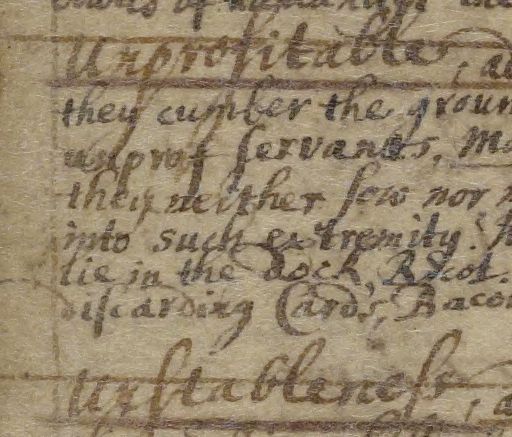 Unprofitable, a
they cumber the groun
unprof servants, Ma
they neither sow nor
into such extremity.
lie in the dock,
discarding Cards, Bacon
Unstableness, a